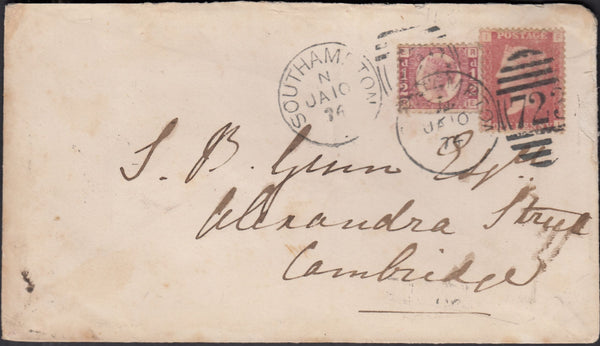 SOUTHAMPTON
N
JA 10
76
POSTAGE
723
N
JA 10
76
S. B. Gunn Esq.
Alexandra Street
Cambridge